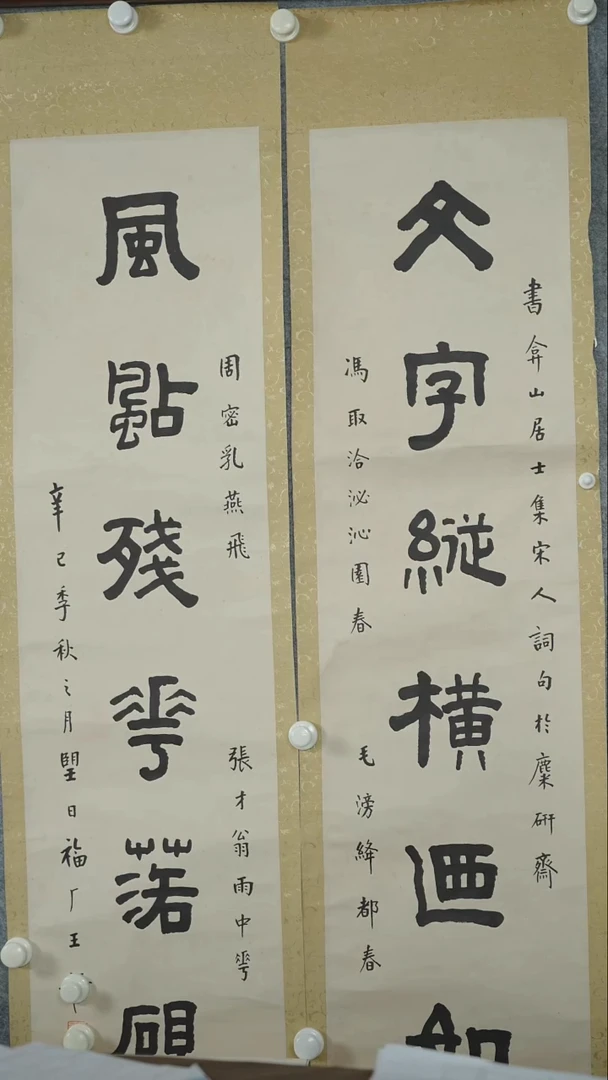 書弇山居士集宋人詞句於麋研齋
文字縱橫迺如
馮取洽泌沁園春
毛滂絳都春
周密乳燕飛
張才翁雨中華
風點殘華落硯
辛巳季秋之月朢日福厂王